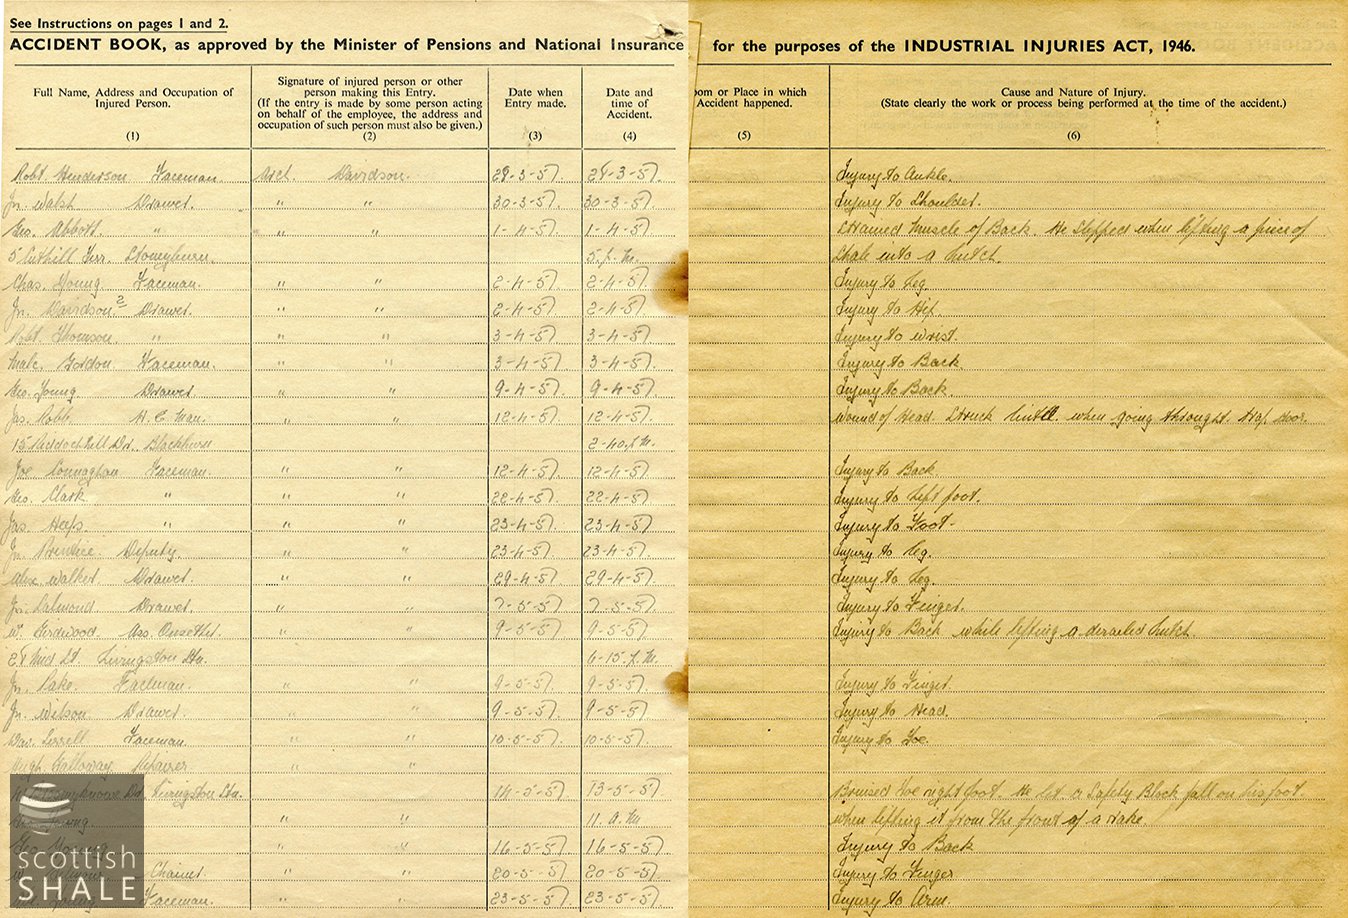 See Instructions on pages 1 and 2.
ACCIDENT BOOK, as approved by the Minister of Pensions and National Insurance for the purposes of the INDUSTRIAL INJURIES ACT, 1946.
Full Name, Address and Occupation of Injured Person. (1)
Signature of injured person or other person making this Entry. (If the entry is made by some person acting on behalf of the employee, the address and occupation of such person must also be given.) (2)
Date when Entry made. (3)
Date and time of Accident. (4)
oom or Place in which Accident happened. (5)
Cause and Nature of Injury. (State clearly the work or process being performed at the time of the accident.) (6)
Robt. Henderson Faceman. Arch. Davidson. 29-3-57. 29-3-57. Injury to Ankle.
Jn. Walsh Drawer. " " 30-3-57. 30-3-57. Injury to Shoulder.
Geo. Abbott. " " " 1-4-57. 1-4-57. Strained muscle of Back. He slipped when lifting a piece of
5 Cuthill Terr. Stoneyburn. 5.p.m. Shale into a hutch.
Chas. Young. Faceman. " " 2-4-57. 2-4-57. Injury to Leg.
Jn. Davidson. 2 Drawer. " " 2-4-57. 2-4-57. Injury to Hip.
Robt. Thomson. " " " 3-4-57. 3-4-57. Injury to Wrist.
Malc. Gordon Faceman. " " 3-4-57. 3-4-57. Injury to Back.
Geo. Young Drawer. " " 9-4-57. 9-4-57. Injury to Back.
Jas. Robb. H. E. Man. " " 12-4-57. 12-4-57. Wound of Head. Struck when going throught Trap Door.
15 Riddochhill Dr. Blackburn 2-40.p.m.
Joe Connaghan Faceman. " " 12-4-57. 12-4-57. Injury to Back.
Geo. Clark. " " " 22-4-57. 22-4-57. Injury to Left foot.
Jas. Heeps. " " " 23-4-57. 23-4-57. Injury to Foot.
Jn. Prentice. Deputy. " " 23-4-57. 23-4-57. Injury to Leg.
Alex. Walker. Drawer. " " 29-4-57. 29-4-57. Injury to Leg.
Jn. Salmond. Drawer. " " 7-5-57. 7-5-57. Injury to Finger.
W. Girdwood. Ass. Onsetter. " " 9-5-57. 9-5-57. Injury to Back while lifting a derailed hutch.
Mid St. Livingston Stn. 6-15.p.m.
Jn. Faceman. " " 9-5-57. 9-5-57. Injury to Finger.
Jn. Wilson Drawer " " 9-5-57. 9-5-57. Injury to Head.
Faceman. " " 10-5-57. 10-5-57. Injury to Toe.
Hugh Galloway Repairer " "
Rd. Livingston Stn. 14-5-57. 13-5-57. Bruised toe right foot. He let a Safety Block fall on his foot
Young " " 11.a.m when lifting it from the front of a rake.
Geo. " " 16-5-57. 16-5-57. Injury to Back
Chainer " " 20-5-57. 20-5-57. Injury to Finger
Faceman. " " 23-5-57. 23-5-57. Injury to Arm.
scottish
SHALE